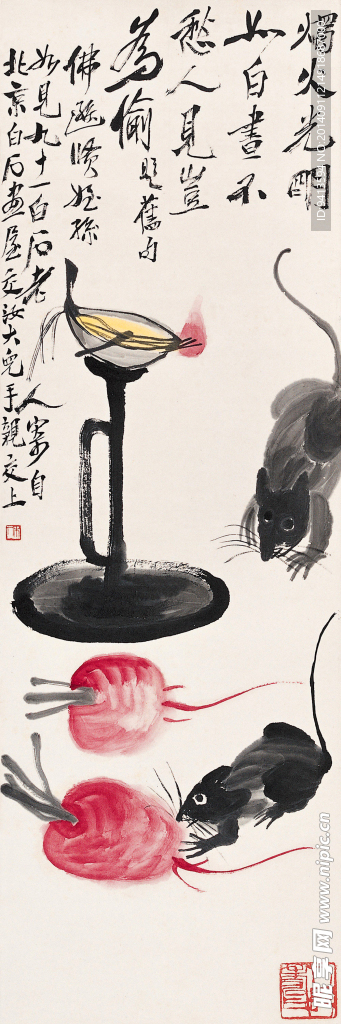 燭火光明
如白晝不
愁人見豈
為偷 題舊句
佛邇賢姪孫
如見九十一白石老人寄自
北京白石畫屋交汝大兒手親交上
昵图网 www.nipic.cn